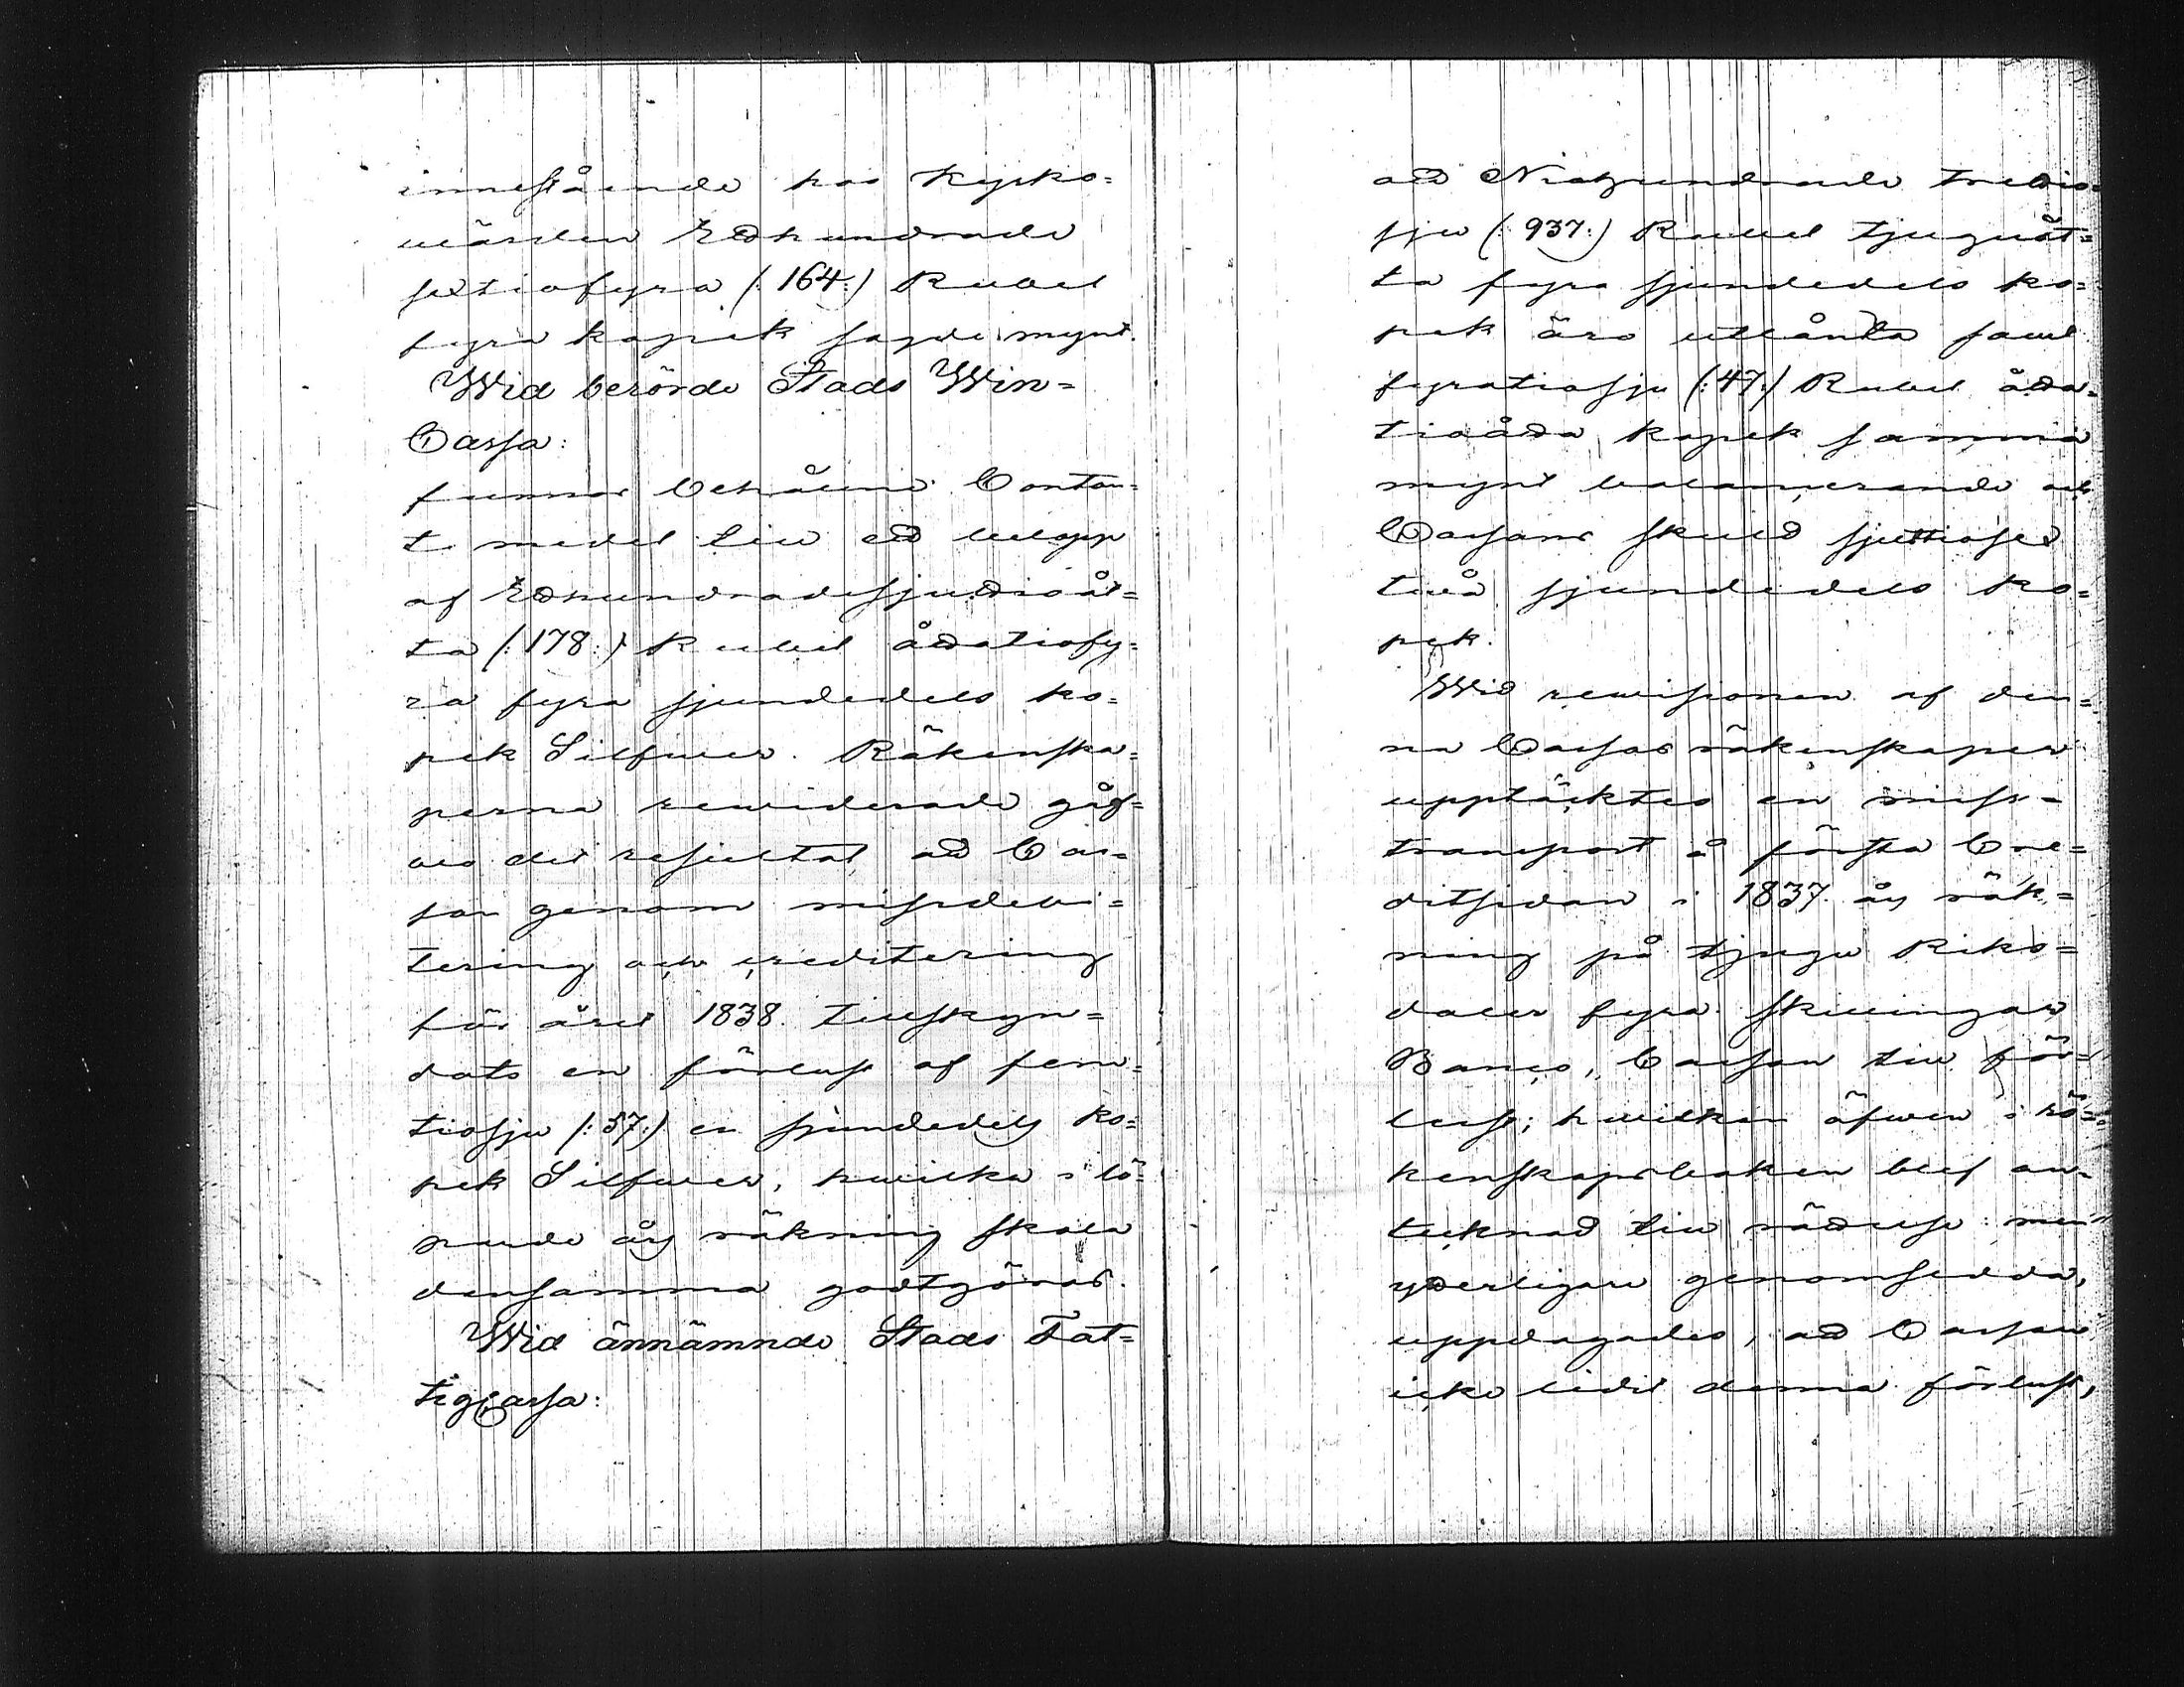 innestående hos Kyrko=
wärden Etthundrade
sextiofyra (: 164 :) Rubel
fyra kopek sagde mynt.
Wid berörde Stads Win=
Cassa:
funnos behållne Contan=
ta medel till ett belopp
af Etthundradesjuttioåt=
ta (: 178 :) Rubel åttatiofy=
ra fyra sjundedels ko=
pek Silfwer. Räkenska=
perna reviderade gåf=
wo det resultat att Cas=
san genom missdebi=
tering och creditering
för året 1838. tillskyn=
dats en förlust af fem=
tiosju (: 57 :) en sjundedels ko=
pek Silfwer, hwilka i lö=
pande års räkning skola
densamma godtgöras.
Wid ännämnde Stads Fat=
tigCassa:
att Niohundrade trettio=
sju (: 937 :) Rubel tjuguåt=
ta fyra sjundedels ko=
pek äro utlånta samt
fyratiosju (: 47 :) Rubel åtta=
tioåtta kopek samma
mynt balancerande och
Cassans skuld sjuttiosex
två sjundedels ko=
pek.
Wid revisionen af den=
na Cassas räkenskaper
upptäcktes en miss=
transport å första Cre=
ditsidan i 1837. års räk=
ning på tjugu Riks=
daler fyra skillingar
Banco, Cassan till för=
lust; hwilken äfwen i rä=
kenskapsboken blef an=
tecknad till rättelse: men
ytterligare genomsedda,
uppdagades, att Cassan
icke lidit denna förlust,